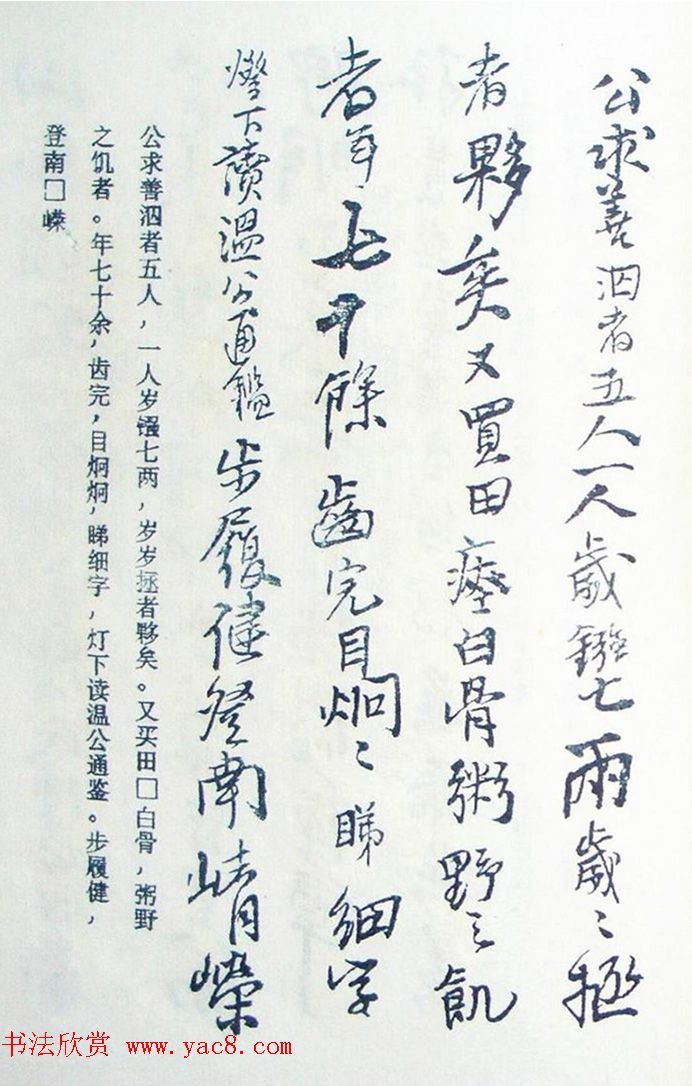 公求善泅者五人一人歲鏹七兩歲〻拯
者夥矣又買田瘞白骨粥野之飢
者年七十餘齒完目炯〻睇細字
燈下讀溫公通鑑步履健登南𡸴嶸
公求善泅者五人，一人岁镪七两，岁岁拯者夥矣。又买田□白骨，粥野
之饥者。年七十余，齿完，目炯炯，睇细字，灯下读温公通鉴。步履健，
登南□嵘
书法欣赏 www.yac8.com